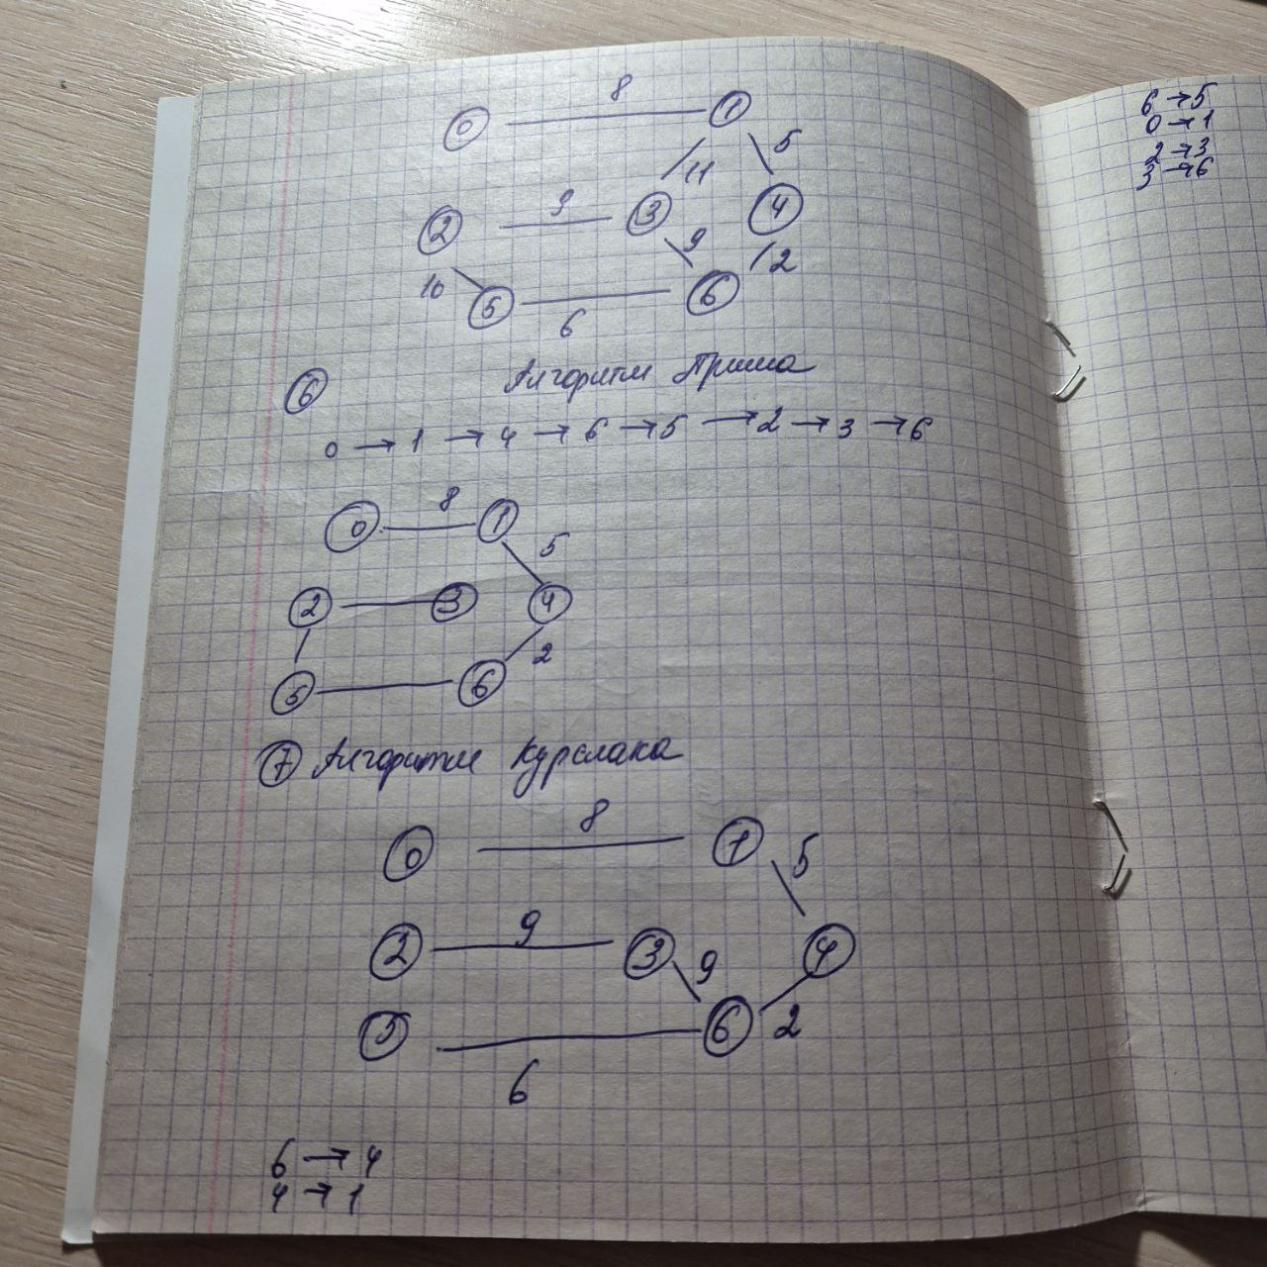 8
0 1
11 5
9
2 3 4
9 2
10
5 6
6
6 Алгоритм Прима
0 → 1 → 4 → 6 → 5 → 2 → 3 → 6
8
0 1
5
2 3 4
2
5 6
7 Алгоритм Курслака
8
0 1
5
9
2 3 4
9
5 6 2
6
6 → 4
4 → 1
6 → 5
0 → 1
2 → 3
3 → 6